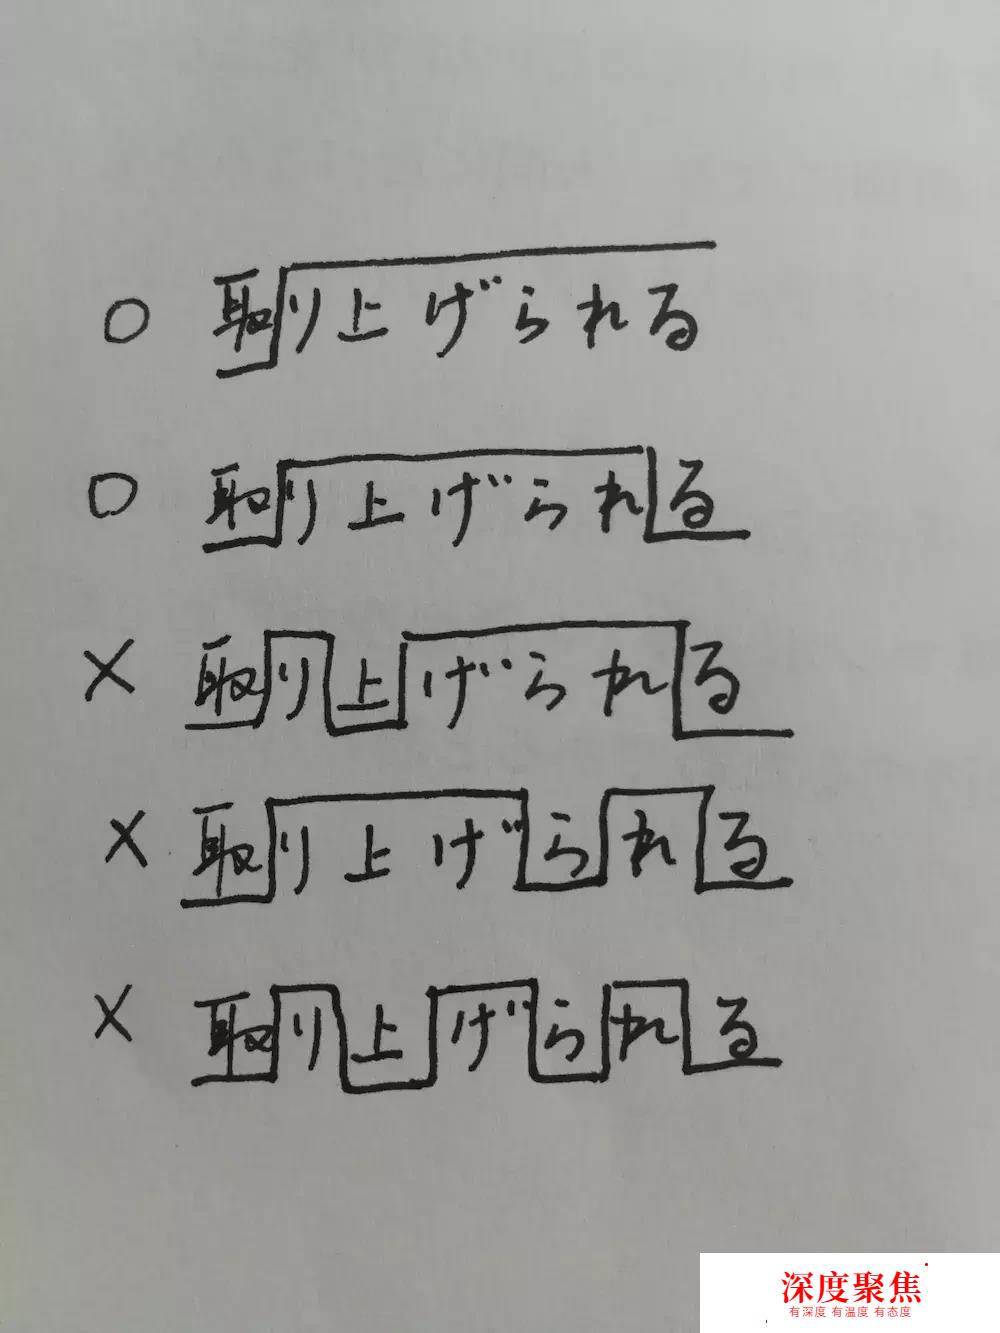 ○ 取り上げられる
○ 取り上げられる
× 取り上げられる
× 取り上げられる
× 取り上げられる
深度聚焦
有深度 有温度 有态度